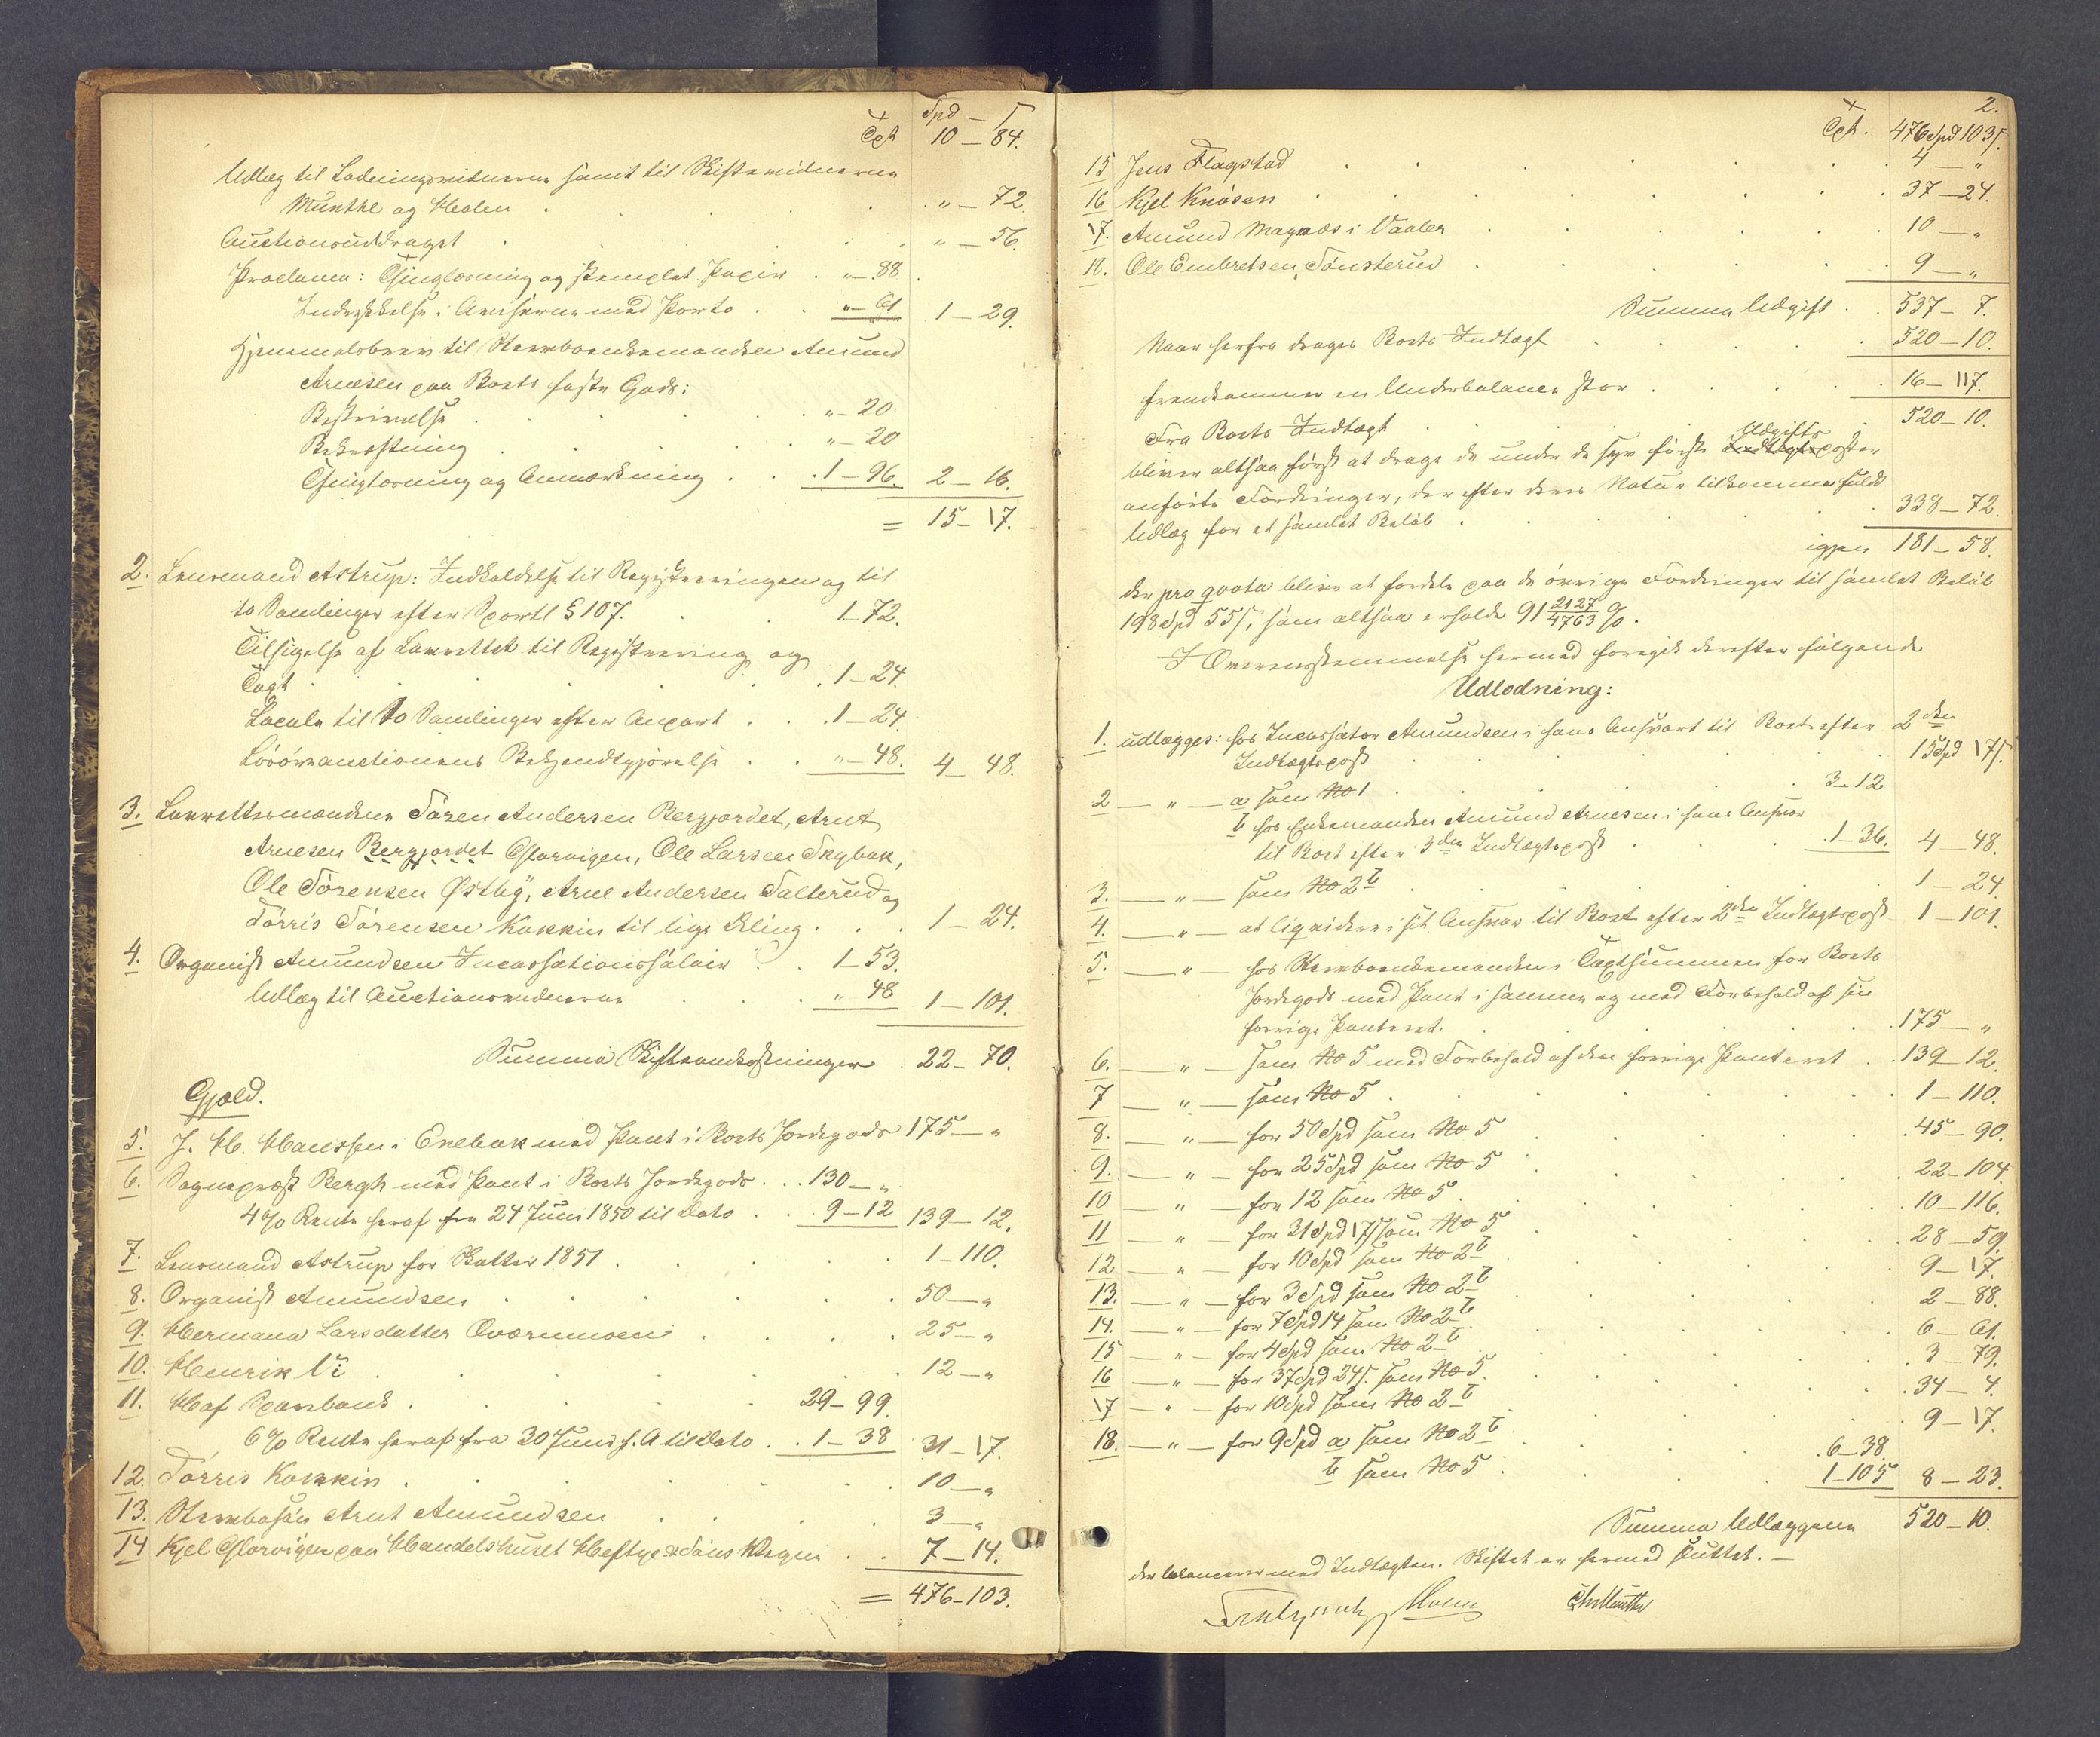 Spd — ſ
Tpt 10 — 84.
Udlæg til Ladningsvidnerne samt til Skiftevidnerne
Munthe og Holen . . . . . „ — 72.
Auctionsuddraget . . . . . „ — 56.
Proclama: Thinglæsning og stemplet Papir . „ — 88
Indrykkelse i Aviserne med Porto . . „ — 61 1 — 29.
Hjemmelsbrev til Stervboenkemanden Amund
Arnesen paa Boets faste Gods:
Beskrivelse . . . . „ — 20
Bekræftning . . . . „ — 20
Thinglæsning og Anmærkning . . . 1 — 96. 2 — 16.
= 15 — 17.
2. Lensmand Astrup: Indkaldelse til Registreringen og til
to Samlinger efter Sportl § 107. . . 1 — 72.
Tilsigelse af Lavrettet til Registrering og
Taxt . . . . . . 1 — 24.
Locale til to Samlinger efter Anpart . . . 1 — 24.
Løsøreauctionens Bekjendtgjørelse . . „ — 48. 4 — 48.
3. Lavrettesmændene Søren Andersen Bergjordet, Arnt
Arnesen Bergjordet Glorvigen, Ole Larsen Skybak,
Ole Sørensen Østby, Arne Andersen Salterud og
Tørris Sørensen Kokkin til lige Deling . . . 1 — 24.
4. Organist Amundsen Incassationssalair . . 1 — 53.
Udlæg til Auctionsvidnerne . . . „ 48 1 — 101.
Summa Skifteomkostninger . 22 — 70.
Gjæld.
5. J. H. Hanssen i Enebak med Pant i Boets Jordegods 175 — „
6. Sognepræst Bergh med Pant i Boets Jordegods . . . 130 — „
4 % Rente heraf fra 24 Juni 1850 til Dato . . . 9 — 12 139 — 12.
7. Lensmand Astrup for Skatter 1851 . . . . . 1 — 110.
8. Organist Amundsen . . . . . . 50 — „
9. Hermana Larsdatter Overmoen . . . . 25 — „
10. Henrik Vi . . . . . . 12 — „
11. Hof Sparebank . . . . 29 — 99.
6 % Rente heraf fra 30 Juni f. A til Dato . . 1 — 38 31 — 17.
12. Tørris Kokkin . . . . . . 10 — „
13. Stervbosøn Arnt Amundsen . . . . 3 — „
14 Kjel Glorvigen paa Handelshuset Heftye & Søns Vegne . . 7 — 14.
= 476 — 103.
2.
Tpt. 476 Spd 103 ſ.
15 Jens Flagstad . . . . . . 4 — „
16 Kjel Knøsen . . . . . . 37 — 24.
17. Amund Magnæs i Vaaler . . . . . 10 — „
18. Ole Embretsen Sønsterud . . . . . 9 — „
Summa Udgift . . 537 — 7.
Naar herfra drages Boets Indtægt . . . . . 520 — 10.
fremkommer en Underbalance stor . . . . . 16 — 117.
Fra Boets Indtægt . . . . . . 520 — 10.
Udgifts
bliver altsaa først at drage de under de syv første Indtægtsposter
anførte Fordringer, der efter deres Natur tilkommer fuldt
Udlæg for et samlet Beløb . . . . . . 338 — 72.
igjen 181 — 58.
der pro qvota bliver at fordele paa de øvrige Fordringer til samlet Beløb
198 Spd 55 ſ, som altsaa erholde 91 2127/4763 %.
I Overensstemmelse hermed foregik derefter følgende
Udlodning:
1. udlægges: hos Incassator Amundsen i hans Ansvar til Boet efter 2den
Indtægtspost . . . . . . 15 Spd 17 ſ.
2 — „ — a som No 1 . . . . . 3 — 12
b hos Enkemanden Amund Arnesen i hans Ansvar
til Boet efter 3die Indtægtspost . . . 1 — 36. 4 — 48.
3. — „ — som No 2 b . . . . . 1 — 24.
4. — „ — at liqvidere i sit Ansvar til Boet efter 2den Indtægtspost 1 — 101.
5. — „ — hos Stervboenkemanden i Taxtsummen for Boets
Jordegods med Pant i samme og med Forbehold af sin
forrige Panteret. . . . . . 175 — „
6. — „ — som No 5 med Forbehold af den forrige Panteret . . 139 — 12.
7 — „ — som No 5 . . . . . . 1 — 110.
8. — „ — for 50 Spd som No 5 . . . . 45 — 90.
9. — „ — for 25 Spd som No 5 . . . . 22 — 104.
10 — „ — for 12 som No 5 . . . . 10 — 116.
11 — „ — for 31 Spd 17 ſ som No 5 . . . . 28 — 59.
12 — „ — for 10 Spd som No 2 b . . . . 9 — 17.
13. — „ — for 3 Spd som No 2 b . . . . 2 — 88.
14. — „ — for 7 Spd 14 som No 2 b . . . . 6 — 61.
15 — „ — for 4 Spd som No 2 b . . . . 3 — 79.
16 — „ — for 37 Spd 24 ſ. som No 5. . . . 34 — 4.
17 — „ — for 10 Spd som No 2 b . . . . 9 — 17.
18. — „ — for 9 Spd a som No 2 b . . . 6 — 38.
b som No 5 . . . 1 — 105 8 — 23.
Summa Udlæggene 520 — 10.
der balancerer med Indtægten. Skiftet er hermed sluttet. —
Holen ChMunthe